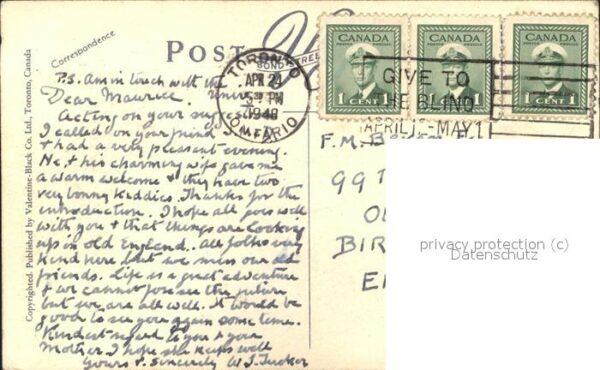 Correspondence
POST
TORONTO
APR 24
5 PM
1948
ONTARIO
CANADA
CANADA
CANADA
1 CENT 1
1 CENT 1
1 CENT 1
GIVE TO
THE BLIND
APRIL 15-MAY 1
P.S. Am in touch with the
Dear Maurice.
Acting on your
I called on your friend
& had a very pleasant evening.
He, & his charming wife gave me
a warm welcome & they have two
very bonny Kiddies. Thanks for the
introduction. I hope all goes well
with you & that things are looking
up in old England. All folks very
kind here but we miss our old
friends. Life is a great adventure
& we cannot foresee the future
but we are all well. It would be
good to see you again some time.
Kindest regard to you & your
Mother. I hope she keeps well
Yours v. sincerely W J Tucker
F. M.
99
O
BIR
E
privacy protection (c)
Datenschutz
Copyrighted. Published by Valentine-Black Co. Ltd., Toronto, Canada